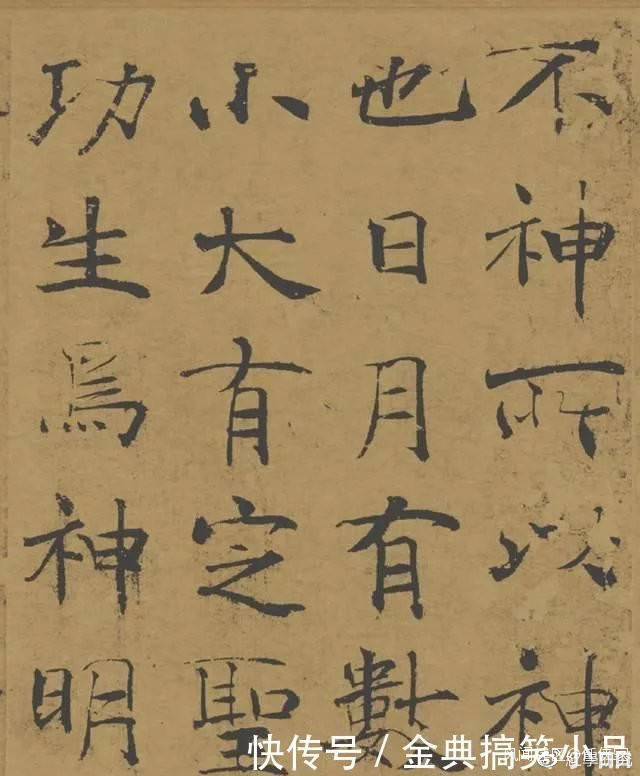 不神所以神
也日月有數
小大有定聖
功生焉神明
快传号 / 金典搞笑小品